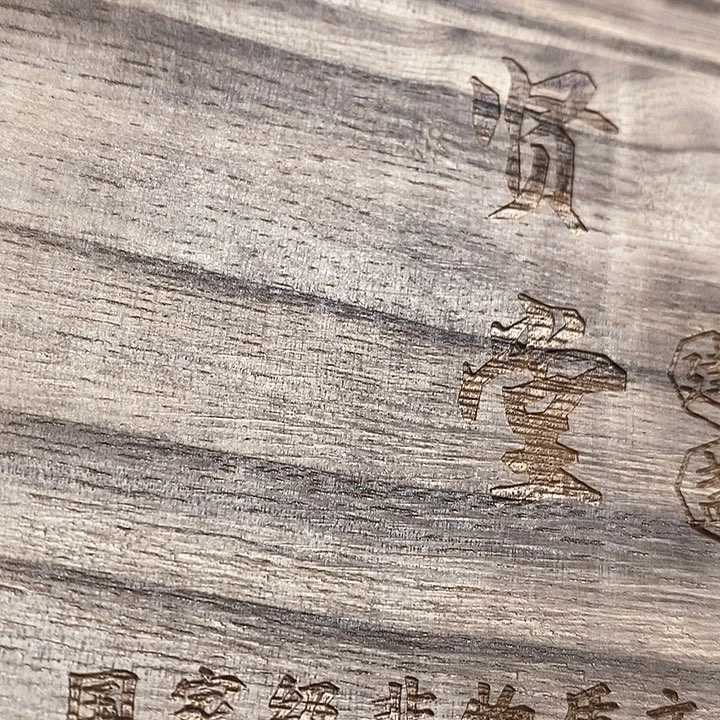 贤堂
国家级非物质文